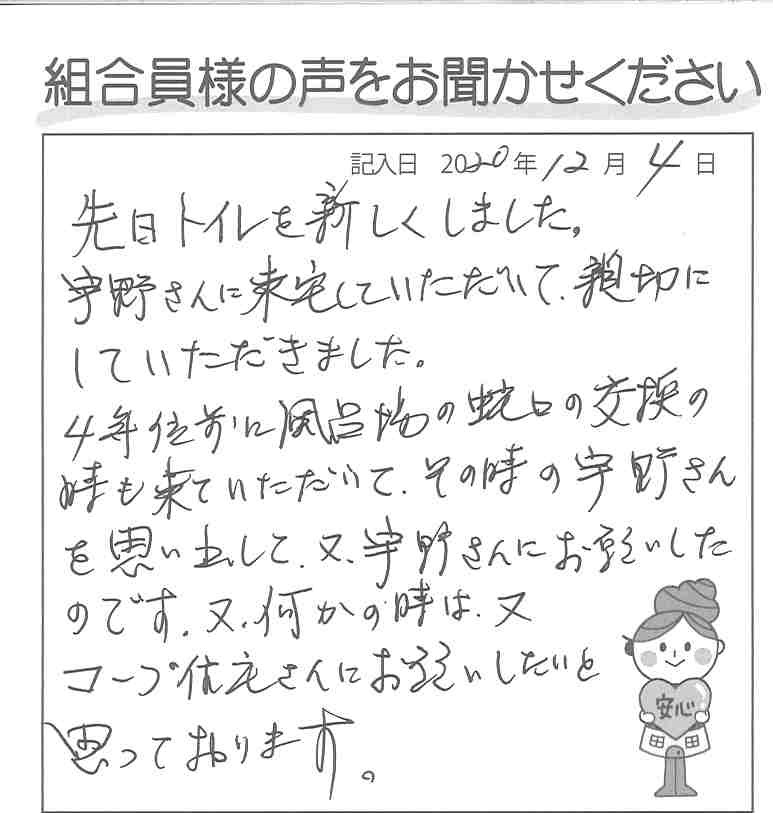 組合員様の声をお聞かせください
記入日 2020年12月4日
先日トイレを新しくしました。
宇野さんに来宅していただいて、親切に
していただきました。
4年位前に風呂場の蛇口の交換の
時も来ていただいて、その時の宇野さん
を思い出して、又、宇野さんにお願いした
のです。又、何かの時は、又
コープ住宅さんにお願いしたいと
思っております。
安心